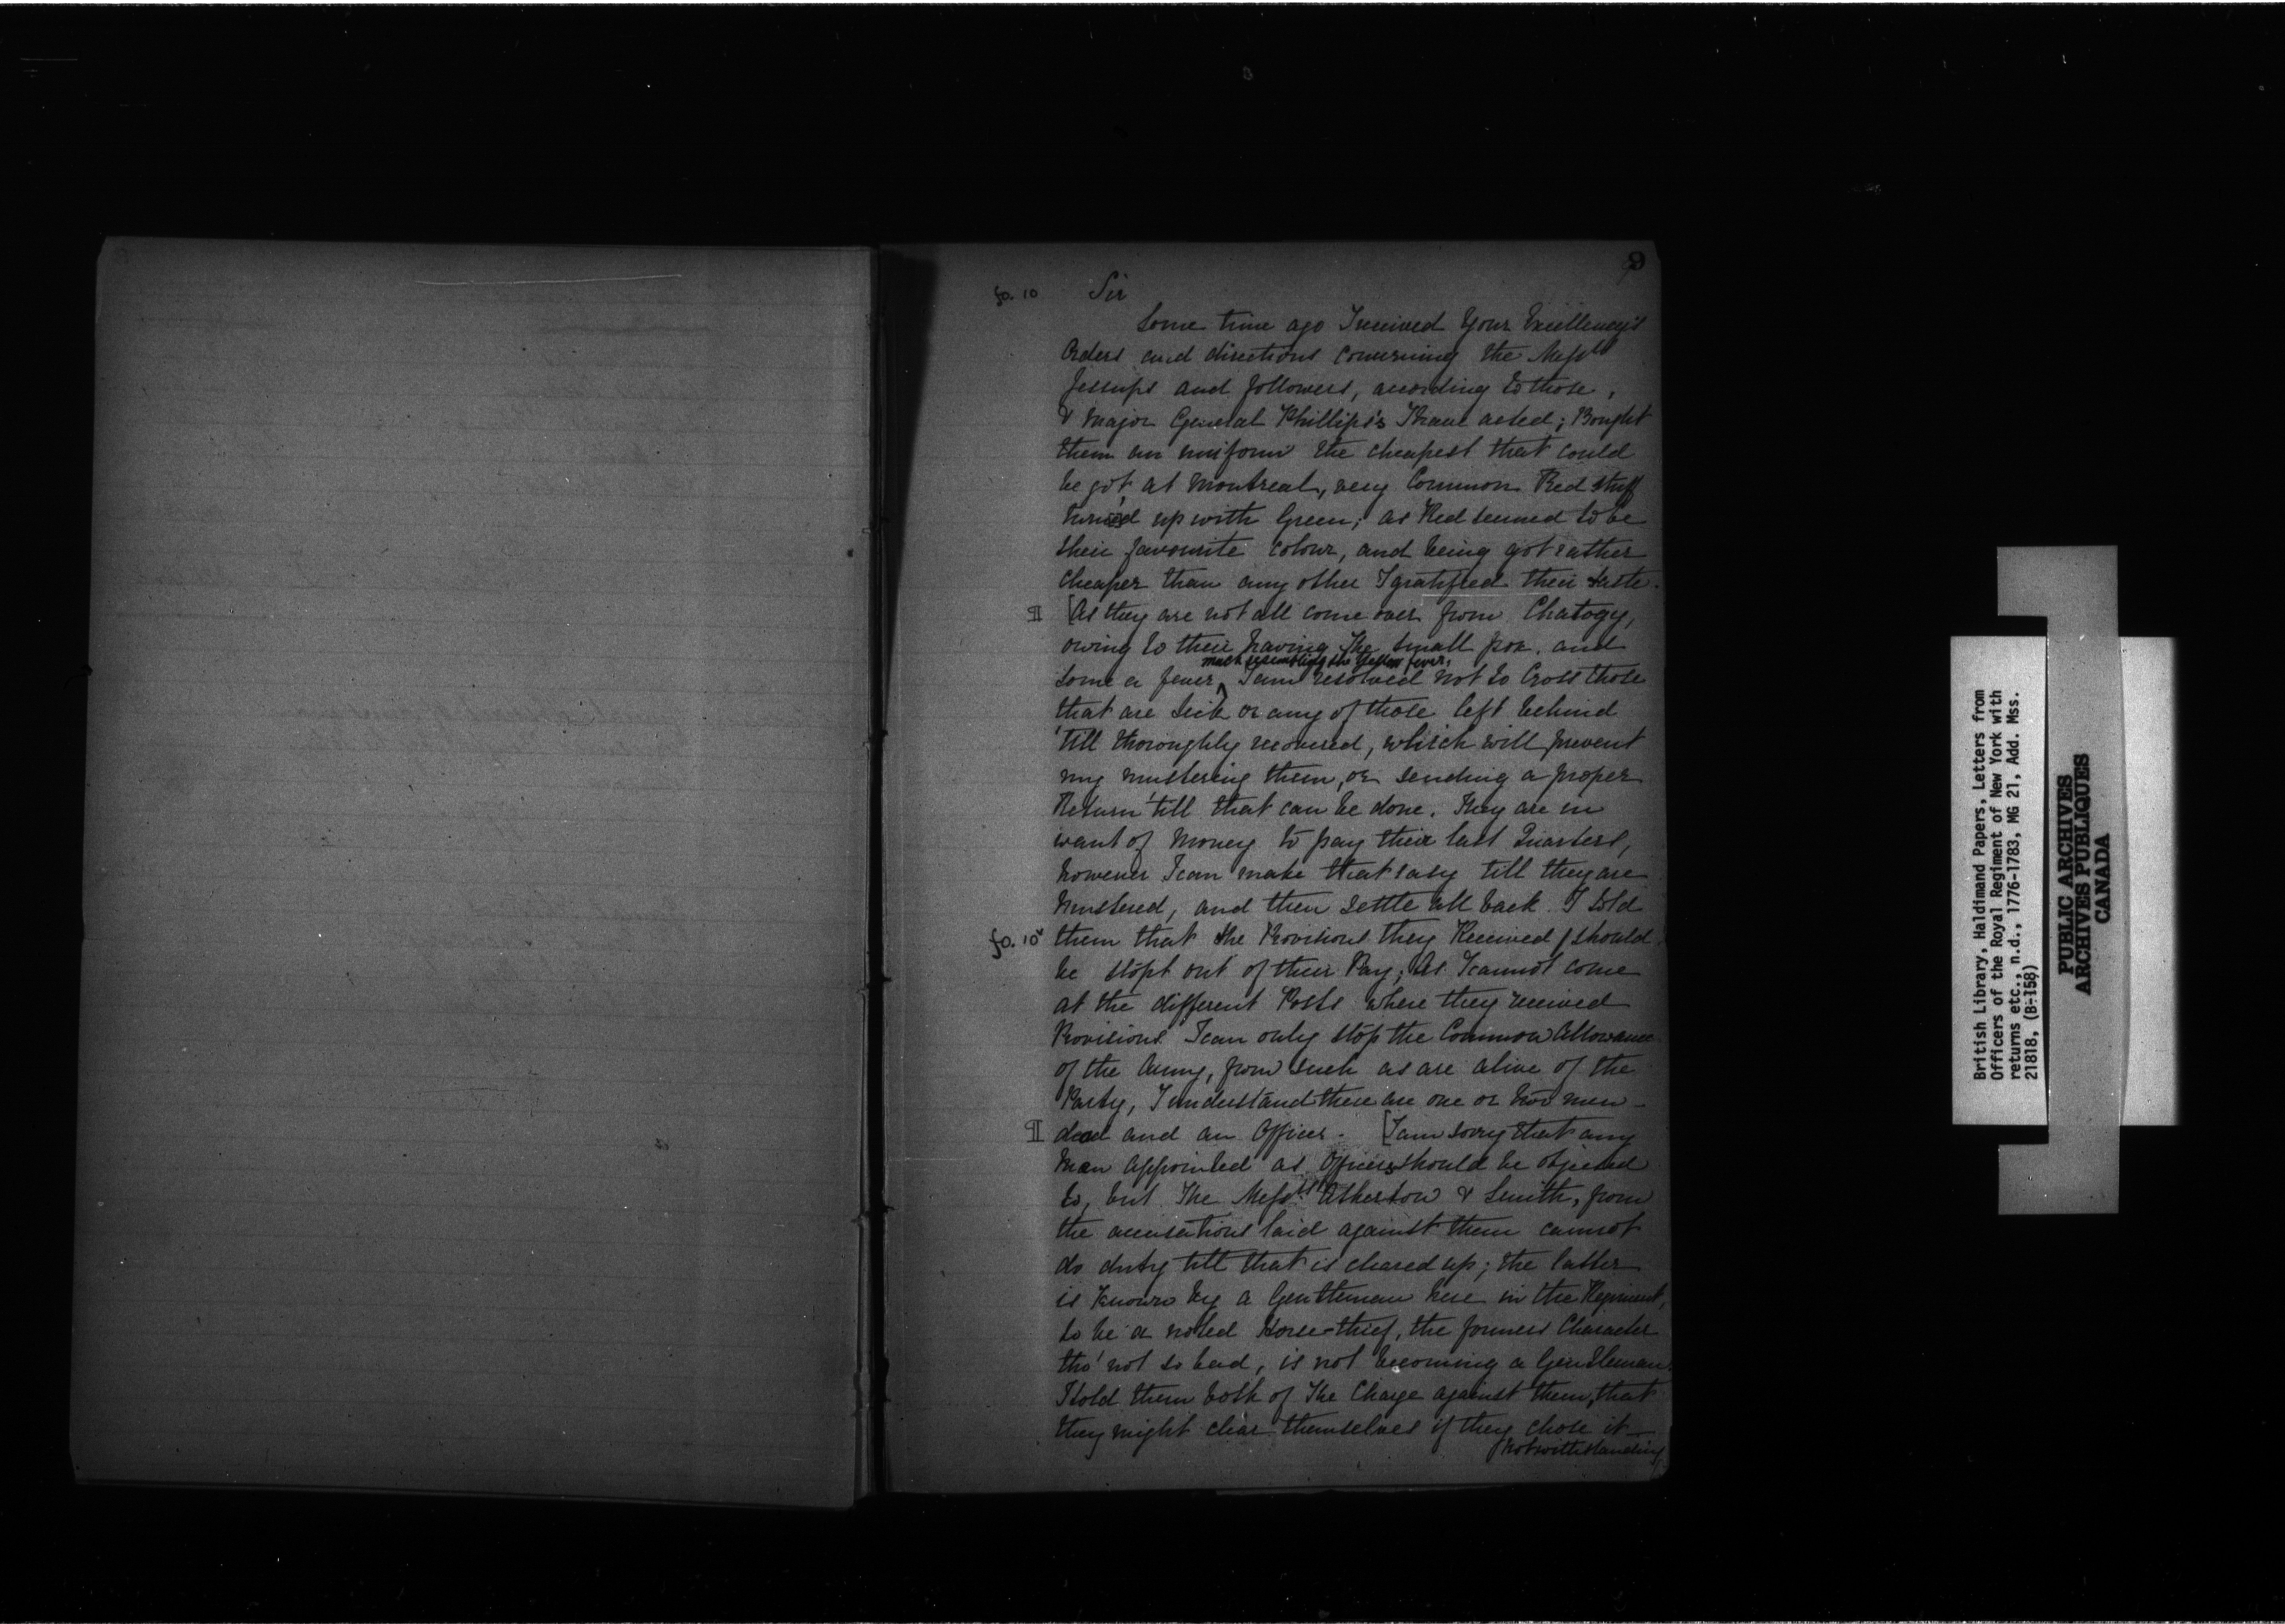 9
fo. 10 Sir
Some time ago I received Your Excellency's
Orders and directions concerning the Messrs
Jessups and followers, according to those,
& Major General Phillips's I have acted; Bought
them an uniform the cheapest that could
be got at Montreal, very Common Red stuff
turned up with Green; as Red seemed to be
their favourite colour, and being got rather
cheaper than any other I gratified their taste.
¶ [As they are not all come over from Chatogy,
owing to their having the Small pox, and
much resembling the Yellow fever,
some a fever ^ I am resolved not to Cross those
that are Sick or any of those left behind
'till thoroughly recovered, which will prevent
my mustering them, or sending a proper
Return 'till that can be done. They are in
want of Money to pay their last Quarters,
however I can make that easy till they are
Mustered, and then settle all back. I told
fo. 10v them that the Provisions they Received / should
be stopt out of their Pay; As I cannot come
at the different Posts where they received
Provisions I can only stop the Common Allowance
of the Army, from Such as are alive of the
Party, I understand there are one or two men
¶ dead and an Officer. [I am sorry that any
Man appointed as Officers should be objected
to, but The Messrs Atherton & Smith, from
the accusations laid against them cannot
do duty till that is cleared up; the latter
is known by a Gentleman here in the Regiment,
to be a noted Horse-thief, the formers Character
tho' not so bad, is not becoming a Gentleman.
I told them both of The Charge against them, that
they might clear themselves if they chose it
/ Notwithstanding
British Library, Haldimand Papers, Letters from
Officers of the Royal Regiment of New York with
returns etc., n.d., 1776-1783, MG 21, Add. Mss.
21818, (B-158)
PUBLIC ARCHIVES
ARCHIVES PUBLIQUES
CANADA